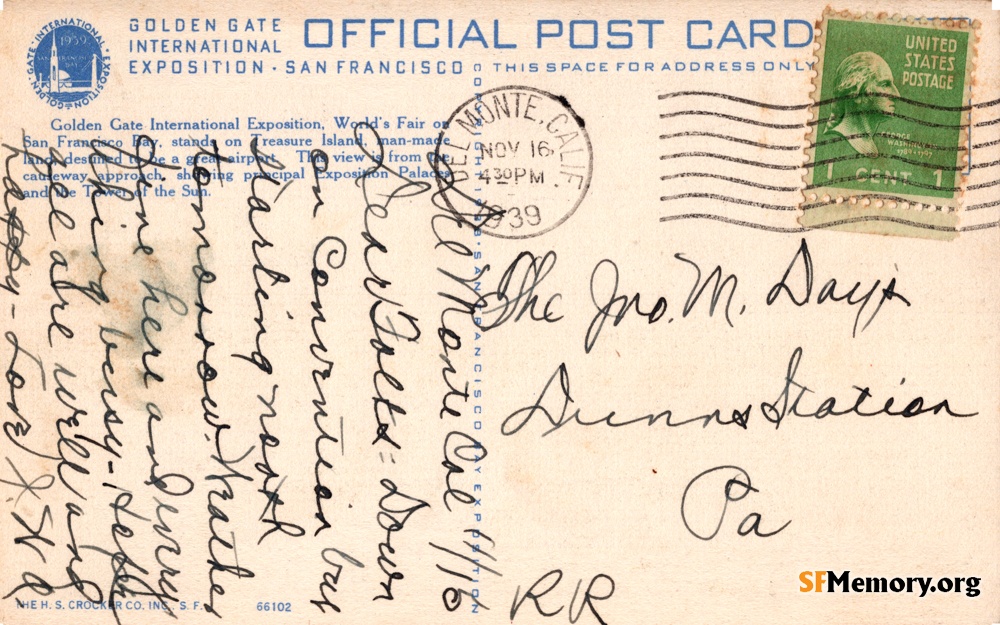 GOLDEN GATE
INTERNATIONAL
EXPOSITION - SAN FRANCISCO
OFFICIAL POST CARD
THIS SPACE FOR ADDRESS ONLY
GOLDEN GATE INTERNATIONAL EXPOSITION
1939
SAN FRANCISCO BAY
Golden Gate International Exposition, World's Fair on
San Francisco Bay, stands on Treasure Island, man-made
land, destined to be a great airport. This view is from the
causeway approach, showing principal Exposition Palaces
and the Tower of the Sun.
DEL MONTE, CALIF
NOV 16
4 30 PM
1939
UNITED
STATES
POSTAGE
GEORGE
WASHINGTON
1789-1797
1 CENT 1
Del Monte Cal 11/16
Dear Folks = Down
on Convention bus
starting north
tomorrow. Weather
fine here and
being busy-
we are well and
happy - Love
The Jno. M. Days
Dunns Station
Pa
RR
SAN FRANCISCO BAY EXPOSITION
THE H. S. CROCKER CO. INC., S. F.
66102
SFMemory.org